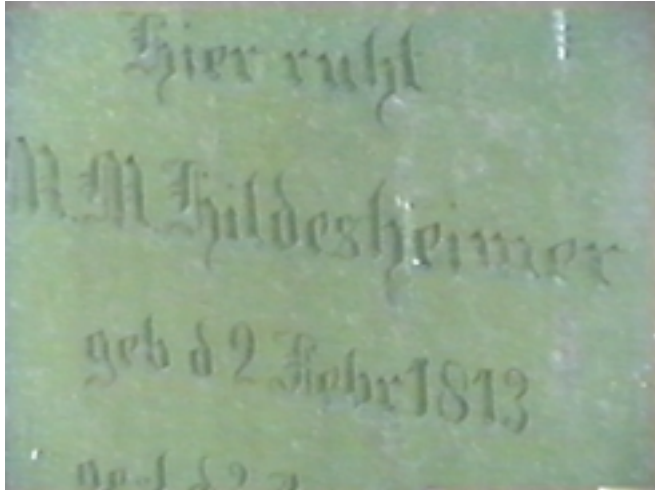 Hier ruht
M M Hildesheimer
geb d 2 Febr 1813